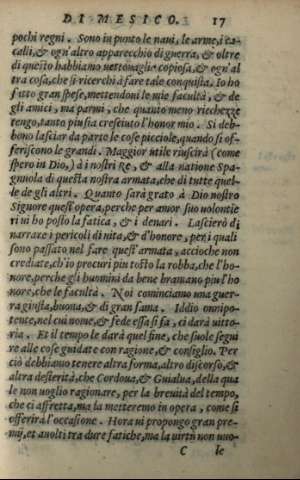 DI MESICO. 17
pochi regni. Sono in punto le naui, le arme, i ca-
ualli, & ogn'altro apparecchio di guerra, & oltre
di questo habbiamo uettouaglia copiosa, & ogn'al
tra cosa, che si ricerchi à fare tale conquista. Io ho
fatto gran spese, mettendoui le mie facultà, & de
gli amici, ma parmi, che quanto meno ricchezze
tengo, tanto piu sia cresciuto l'honor mio. Si deb-
bono lasciar da parte le cose picciole, quando si of-
feriscono le grandi. Maggior utile riuscirà (come
spero in Dio,) à i nostri Re, & alla natione Spa-
gnuola di questa nostra armata, che di tutte quel-
le de gli altri. Quanto sarà grato à Dio nostro
Signore quest'opera, perche per amor suo uolentie
ri ui ho posto la fatica, & i denari. Lascierò di
narrare i pericoli di uita, & d'honore, per i quali
sono passato nel fare quest'armata, accioche non
crediate, ch'io procuri piu tosto la robba, che l'ho-
nore, perche gli huomini da bene bramano piu l'ho
nore, che le facultà. Noi cominciamo una guer-
ra giusta, buona, & di gran fama. Iddio onnipo-
tente, nel cui nome, & fede essa si fa, ci darà uitto-
ria. Et il tempo le darà quel fine, che suole segui
re alle cose guidate con ragione, & consiglio. Per
ciò debbiamo tenere altra forma, altro discorso, &
altra desterità, che Cordoua, & Guialua, della qua
le non uoglio ragionare, per la breuità del tempo,
che ci affretta, ma la metteremo in opera, come si
offerirà l'occasione. Hora ui propongo gran pre-
mij, et auolti tra dure fatiche, ma la uirtù non uuo-
C le